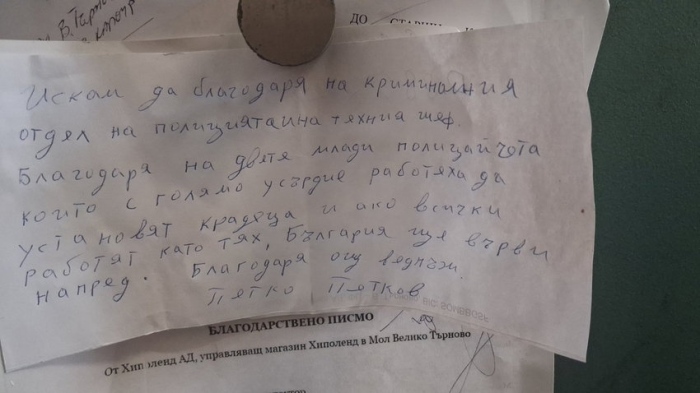 В. Търно
ДО
Искам да благодаря на криминалния
отдел на полицията и на техния шеф.
Благодаря на двете млади полицайчета
които с голямо усърдие работяха да
установят крадеца и ако всички
работят като тях, България ще върви
напред. Благодаря ощ веднъж.
Пятко Пятков
БЛАГОДАРСТВЕНО ПИСМО
От Хиполенд АД, управляващ магазин Хиполенд в Мол Велико Търново